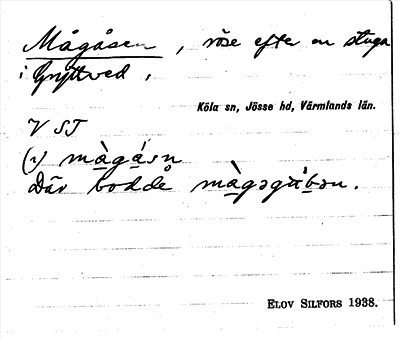 Mågåsen, röse efter en stuga
i Gryttved.
Köla sn, Jösse hd, Värmlands län.
V ST
(1) màgásn
Där bodde màgəgúbən.
ELOV SILFORS 1938.